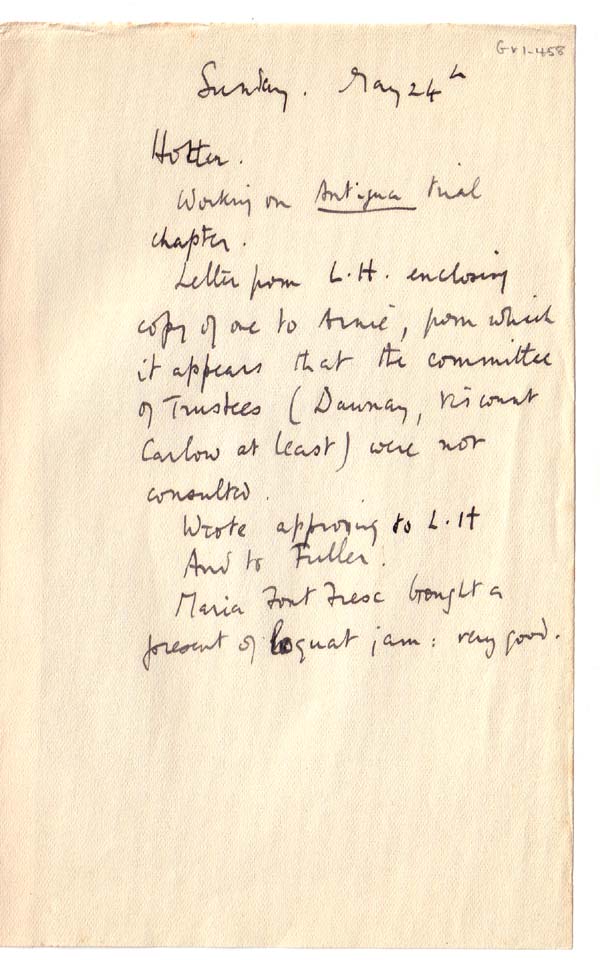 GV1-458
Sunday. May 24th
Hotter.
Working on Antigua trial
chapter.
Letter from L.H. enclosing
copy of one to Arnie, from which
it appears that the committee
of Trustees (Dawnay, Viscount
Carlow at least) were not
consulted.
Wrote approving to L.H
And to Fuller.
Maria Font Fresc bought a
present of loquat jam: very good.